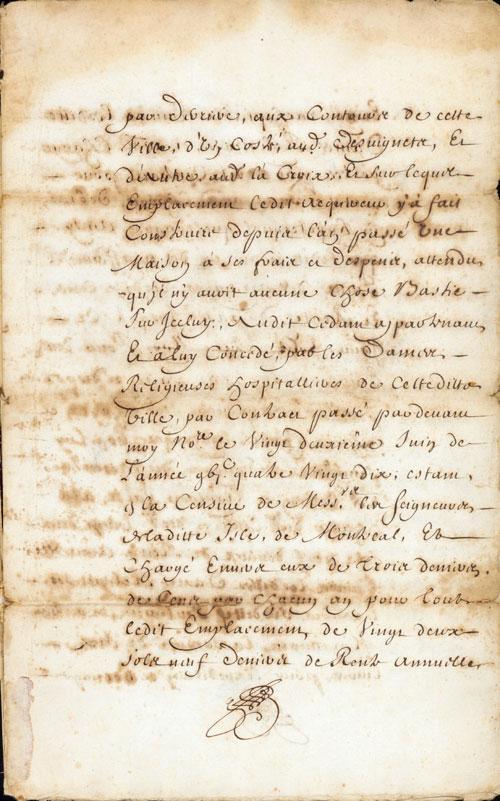 par derriere, aux Contours de cette
Ville, d'un Costé, aud. Desuignets, Et
d'autre aud. la Croix, Et Sur lequel
Emplacement ledit acquereur y a fait
Construire depuis l'an passé Une
Maison a ses frais et despens, attendu
qu'il n'y avoit aucune chose Bastie
Sur Iceluy, Audit Cedant appartenant
Et a luy Concedé, par les Dames
Religieuses hospitallieres de Cetteditte
Ville, par Contract passé pardevant
moy Nore le Vingt deuxieme Juin de
l'année gbjc quatre Vingt dix, estant
en la Censive de Messrs les Seigneurs
de laditte Isle, de Montreal, Et
Chargé Envers eux de Trois deniers
de Cens par Chacun an pour tout
ledit Emplacement, de Vingt deux
sols neuf Deniers de Rente annuelle